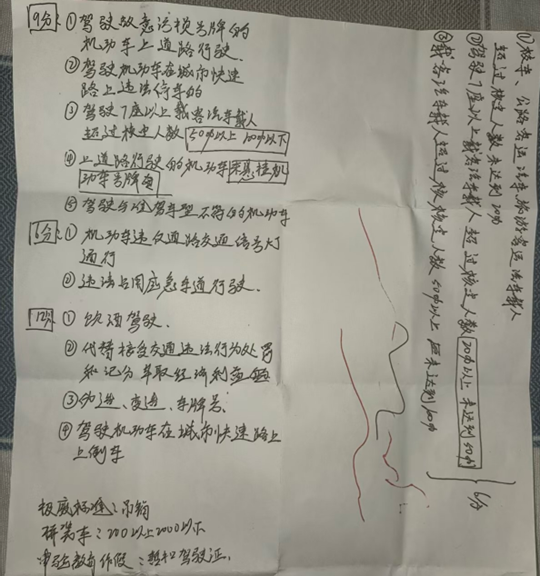 9分 ① 驾驶故意污损号牌的
机动车上道路行驶.
② 驾驶机动车在城市快速
路上违法停车的
③ 驾驶7座以上载客汽车载人
超过核定人数 50%以上 100%以下
④ 上道路行驶的机动车未悬挂机
动车号牌的
⑤ 驾驶与准驾车型不符的机动车
6分 ① 机动车违反道路交通信号灯
通行
② 违法占用应急车道行驶.
12分 ① 饮酒驾驶.
② 代替接受交通违法行为处罚
和记分牟取经济利益
③ 伪造、变造、车牌
④ 驾驶机动车在城市快速路上
上倒车
:吊销
拼装车:200以上2000以下
作假:驾驶证.
①校车、公路客运汽车、旅游客运汽车载人
超过核定人数未达到20%
②驾驶7座以上载客汽车载人超过核定人数 20%以上 未达到50%
③载客汽车载人超过核定人数50%以上 未达到100%
6分